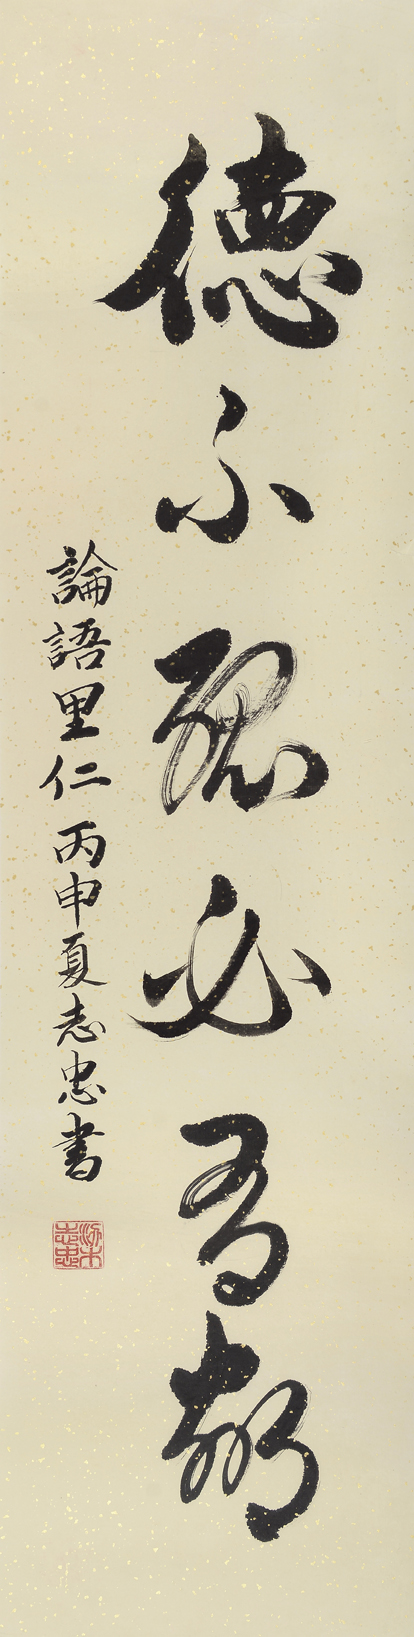 德不孤必有鄰
論語里仁 丙申夏志忠書
梁志忠